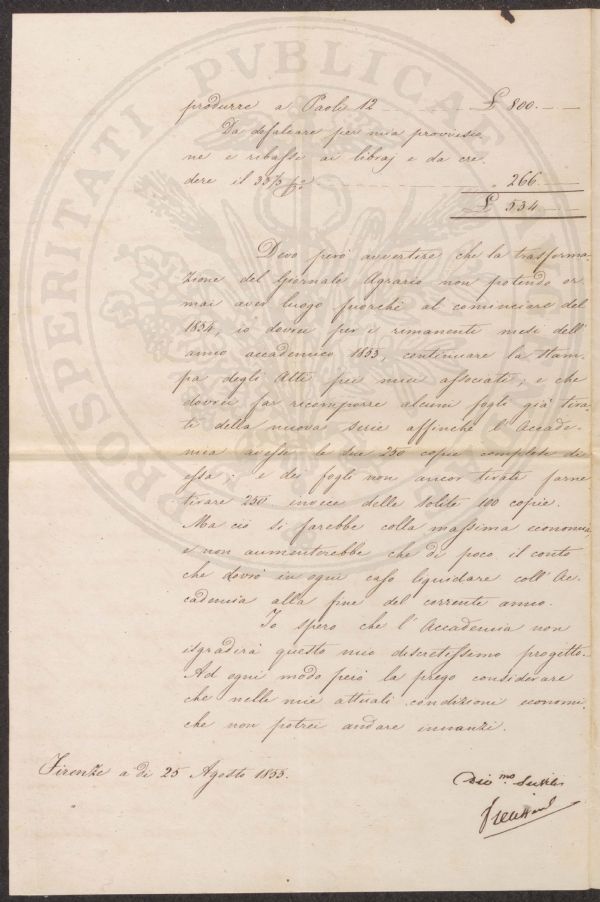 produrre a Paoli 12 £ 800.
Da defalcare per mia provvisio
ne e ribassi ai libraj e da cre
dere il 33⅓ p%
„ 266
£ 534
Devo però avvertire che la trasforma-
zione del Giornale Agrario non potendo or
mai aver luogo fuorchè al cominciare del
1854, io dovrei per i rimanenti mesi dell'
anno accademico 1853, continuare la stam-
pa degli Atti per miei associati, e che
dovrei far ricomporre alcuni fogli già tira-
ti della nuova serie affinchè l'Accade-
mia avesse le sue 250 copie complete di
essa; e dei fogli non ancor tirati farne
tirare 250 invece delle solite 100 copie.
Ma ciò si farebbe colla massima economia
e non aumenterebbe che di poco il conto
che dovrò in ogni caso liquidare coll'Ac-
cademia alla fine del corrente anno.
Io spero che l'Accademia non
isgradirà questo mio discretissimo progetto.
Ad ogni modo però la prego considerare
che nelle mie attuali condizioni economi-
che non potrei andare innanzi.
Firenze a dì 25 Agosto 1853.
PROSPERITATI PVBLICAE